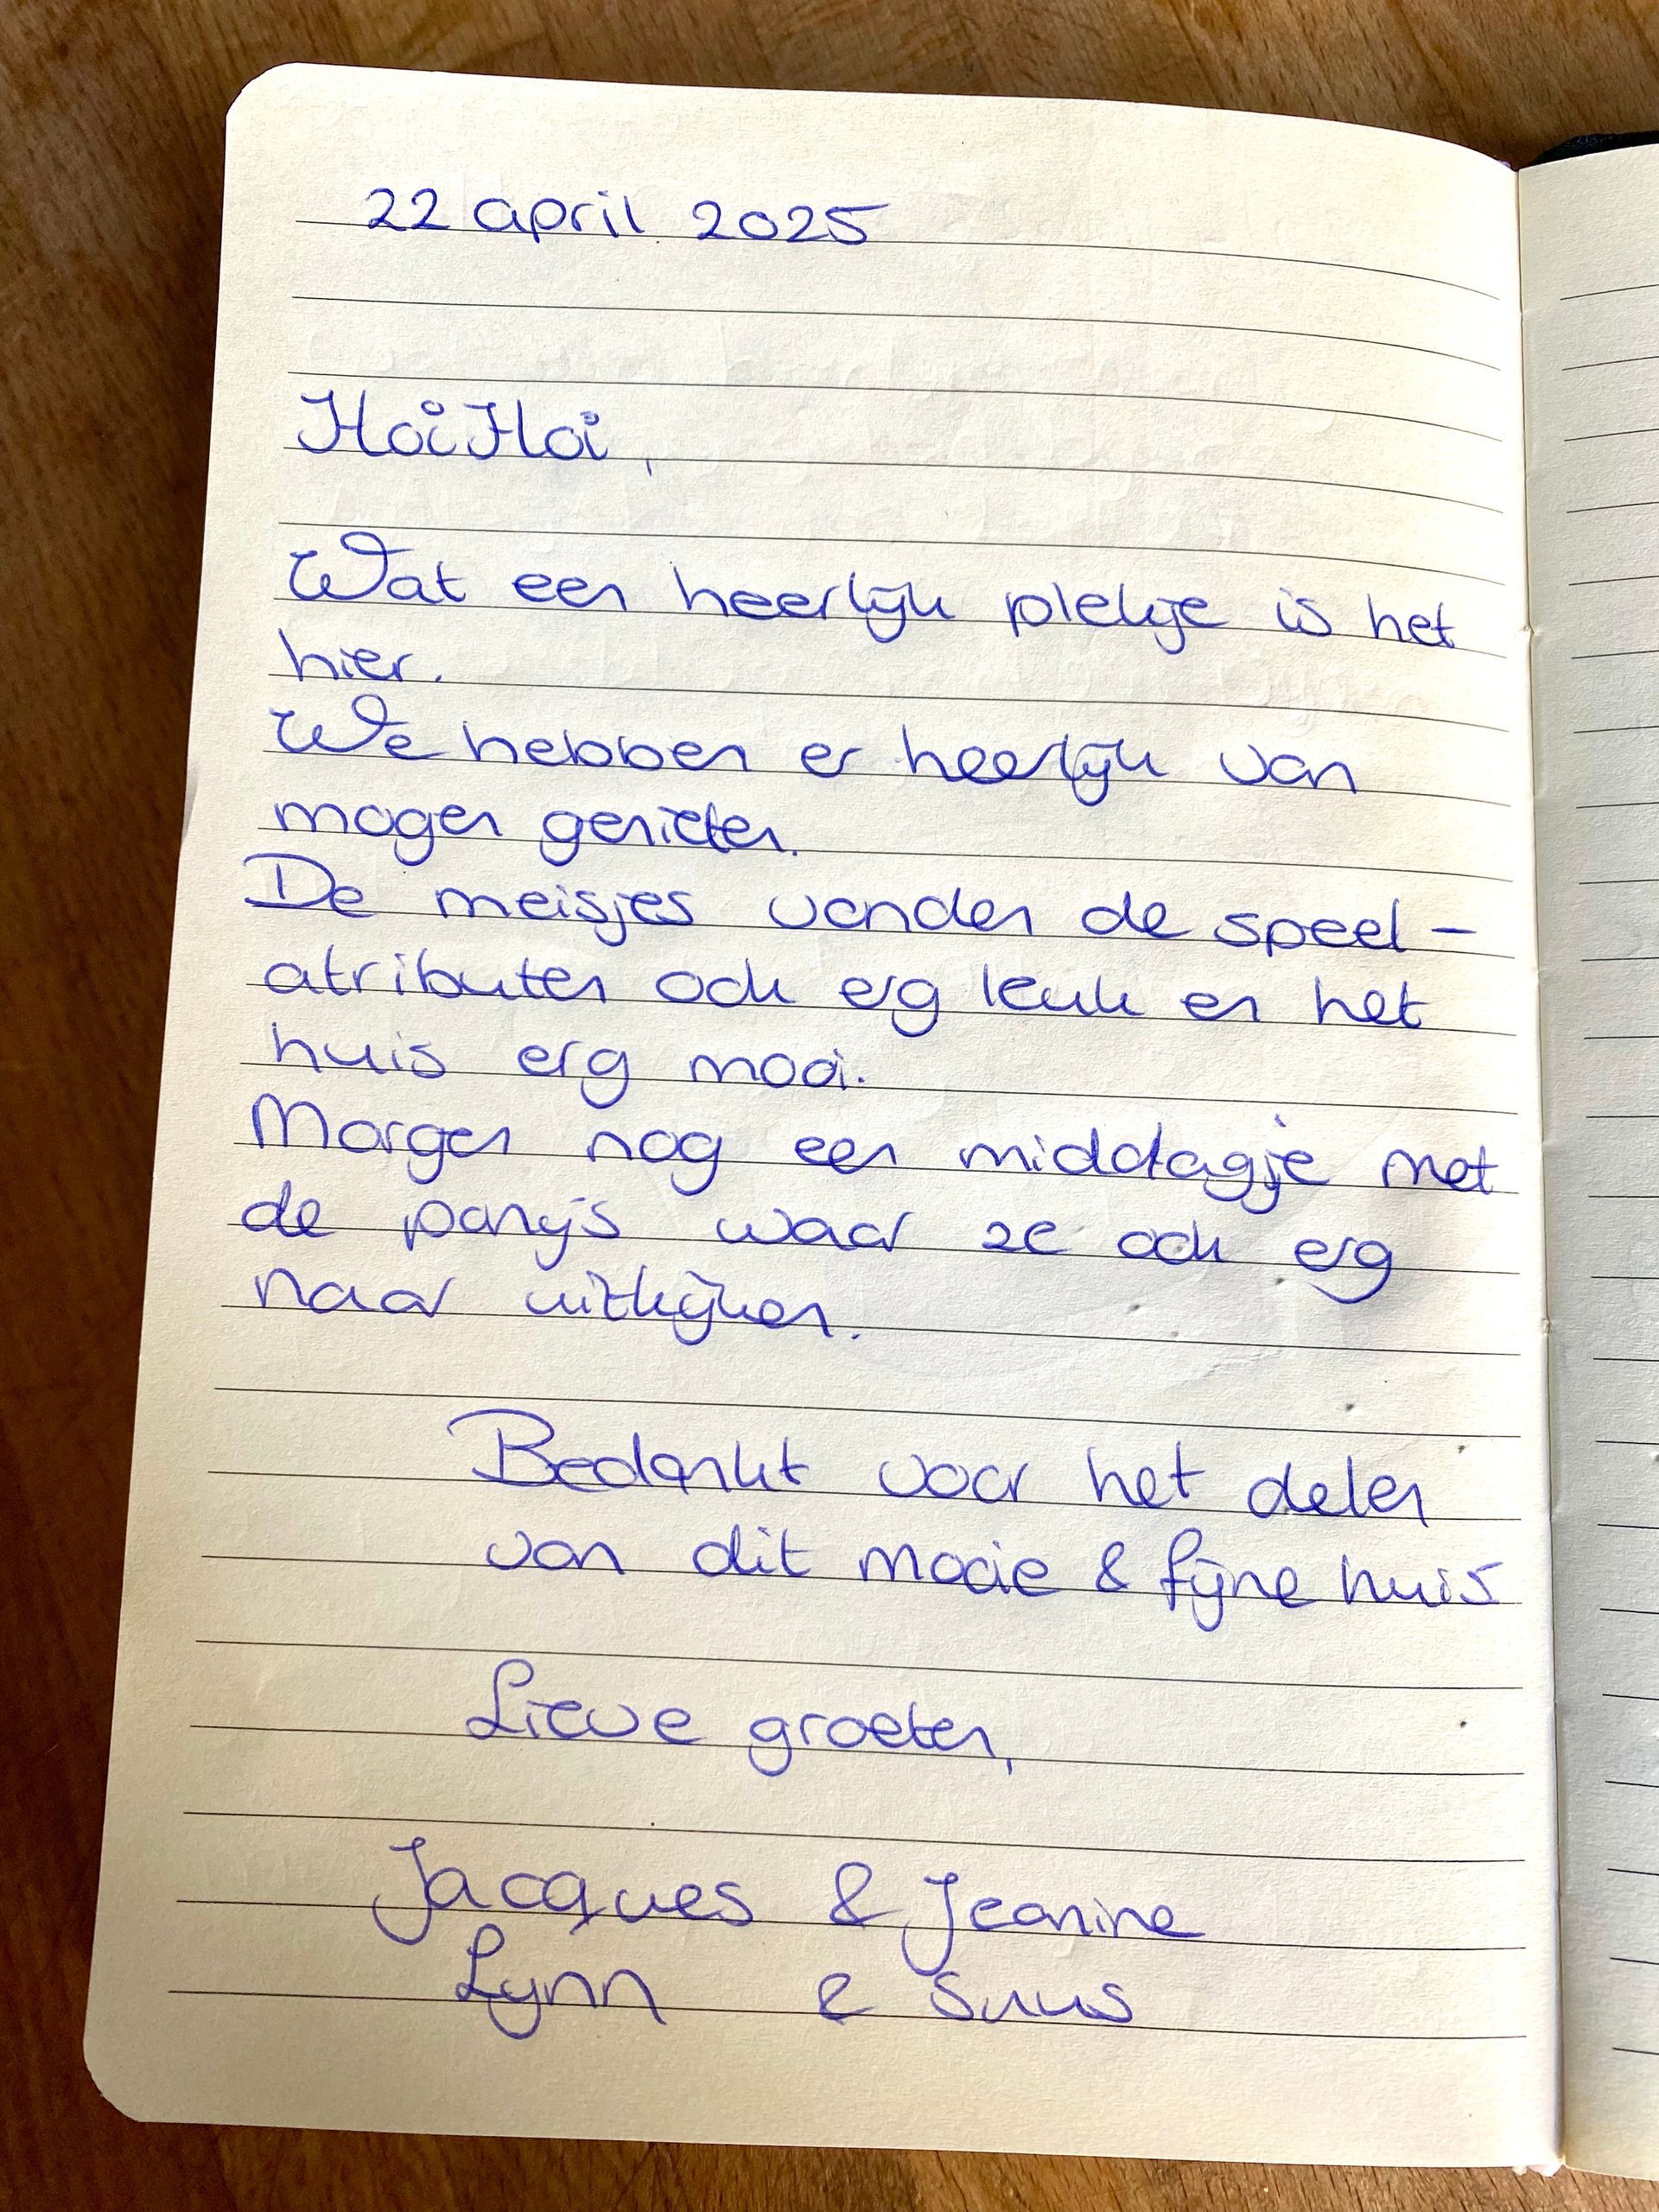 22 april 2025
Hoi Hoi,
Wat een heerlijk plekje is het
hier.
We hebben er heerlijk van
mogen genieten.
De meisjes vonden de speel-
atributen ook erg leuk en het
huis erg mooi.
Morgen nog een middagje met
de pony's waar ze ook erg
naar uitkijken.
Bedankt voor het delen
van dit mooie & fijne huis
Lieve groeten,
Jacques & Jeanine
Lynn & Suus